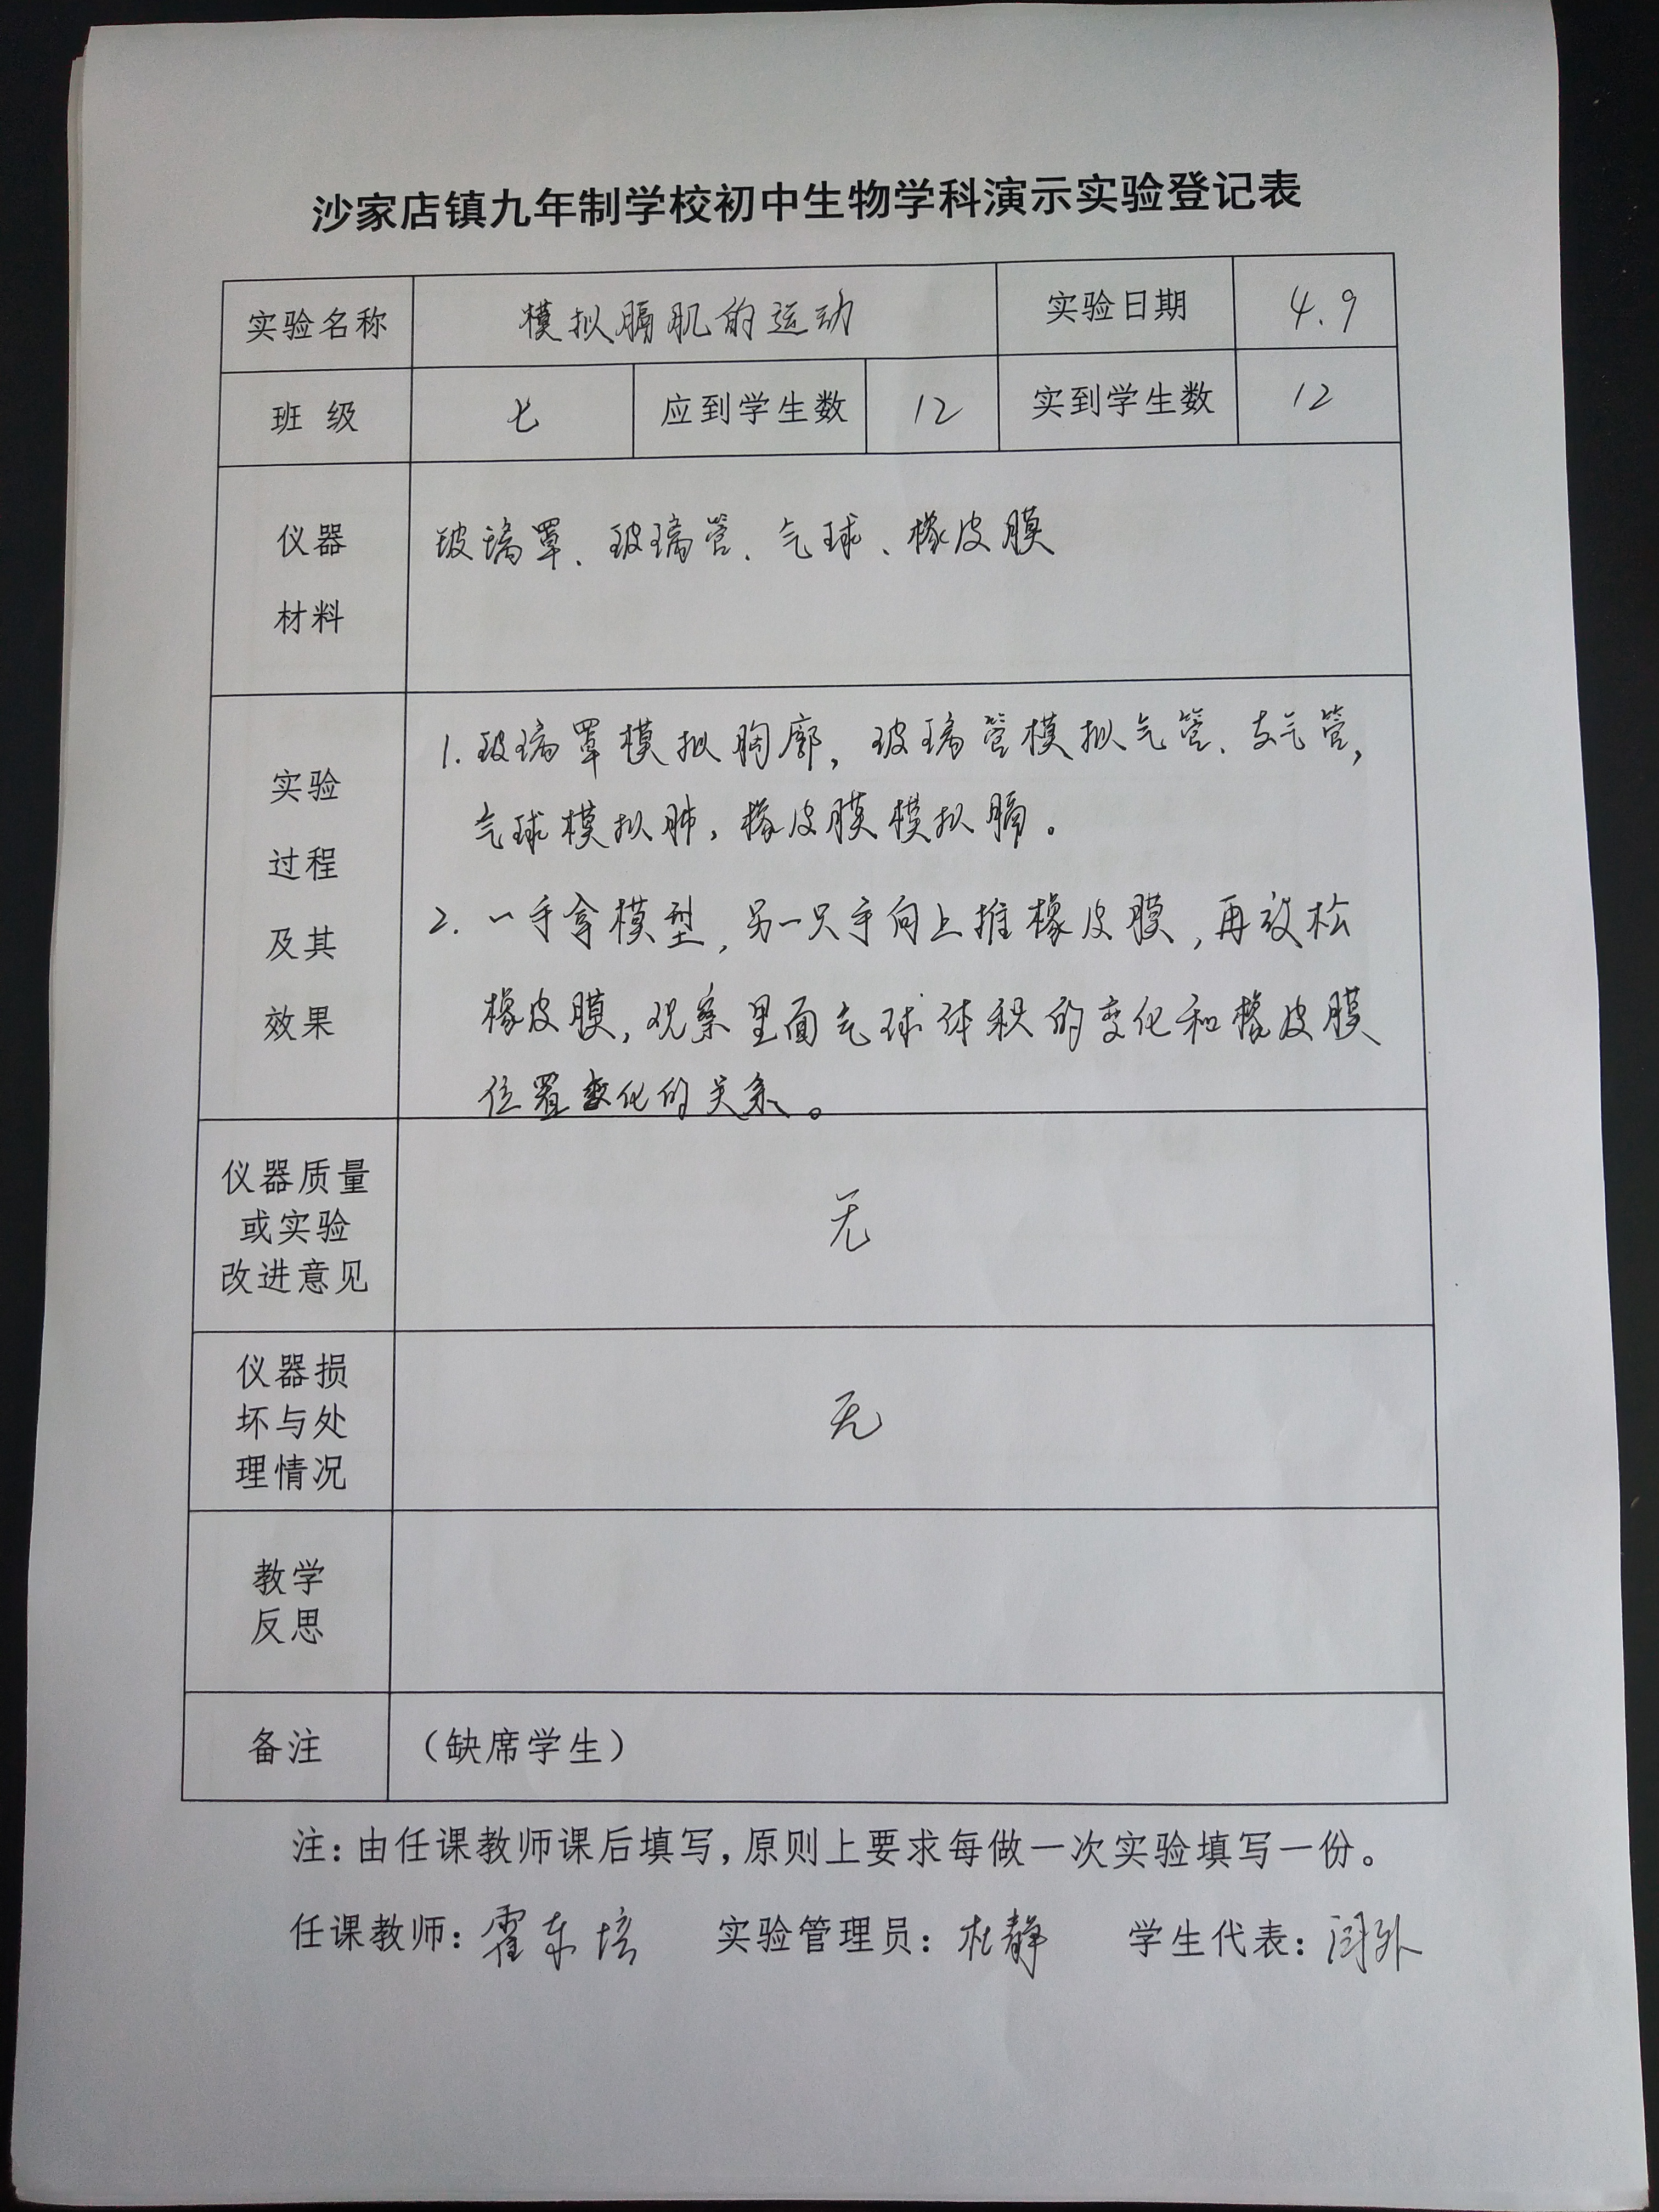 沙家店镇九年制学校初中生物学科演示实验登记表
实验名称 模拟膈肌的运动 实验日期 4.9
班 级 七 应到学生数 12 实到学生数 12
仪器
材料
玻璃罩、玻璃管、气球、橡皮膜
实验
过程
及其
效果
1. 玻璃罩模拟胸廓，玻璃管模拟气管、支气管，
气球模拟肺，橡皮膜模拟膈。
2. 一手拿模型，另一只手向上推橡皮膜，再放松
橡皮膜，观察里面气球体积的变化和橡皮膜
位置变化的关系。
仪器质量
或实验
改进意见
无
仪器损
坏与处
理情况
无
教学
反思
备注 （缺席学生）
注：由任课教师课后填写，原则上要求每做一次实验填写一份。
任课教师：霍东培 实验管理员：杜静 学生代表：